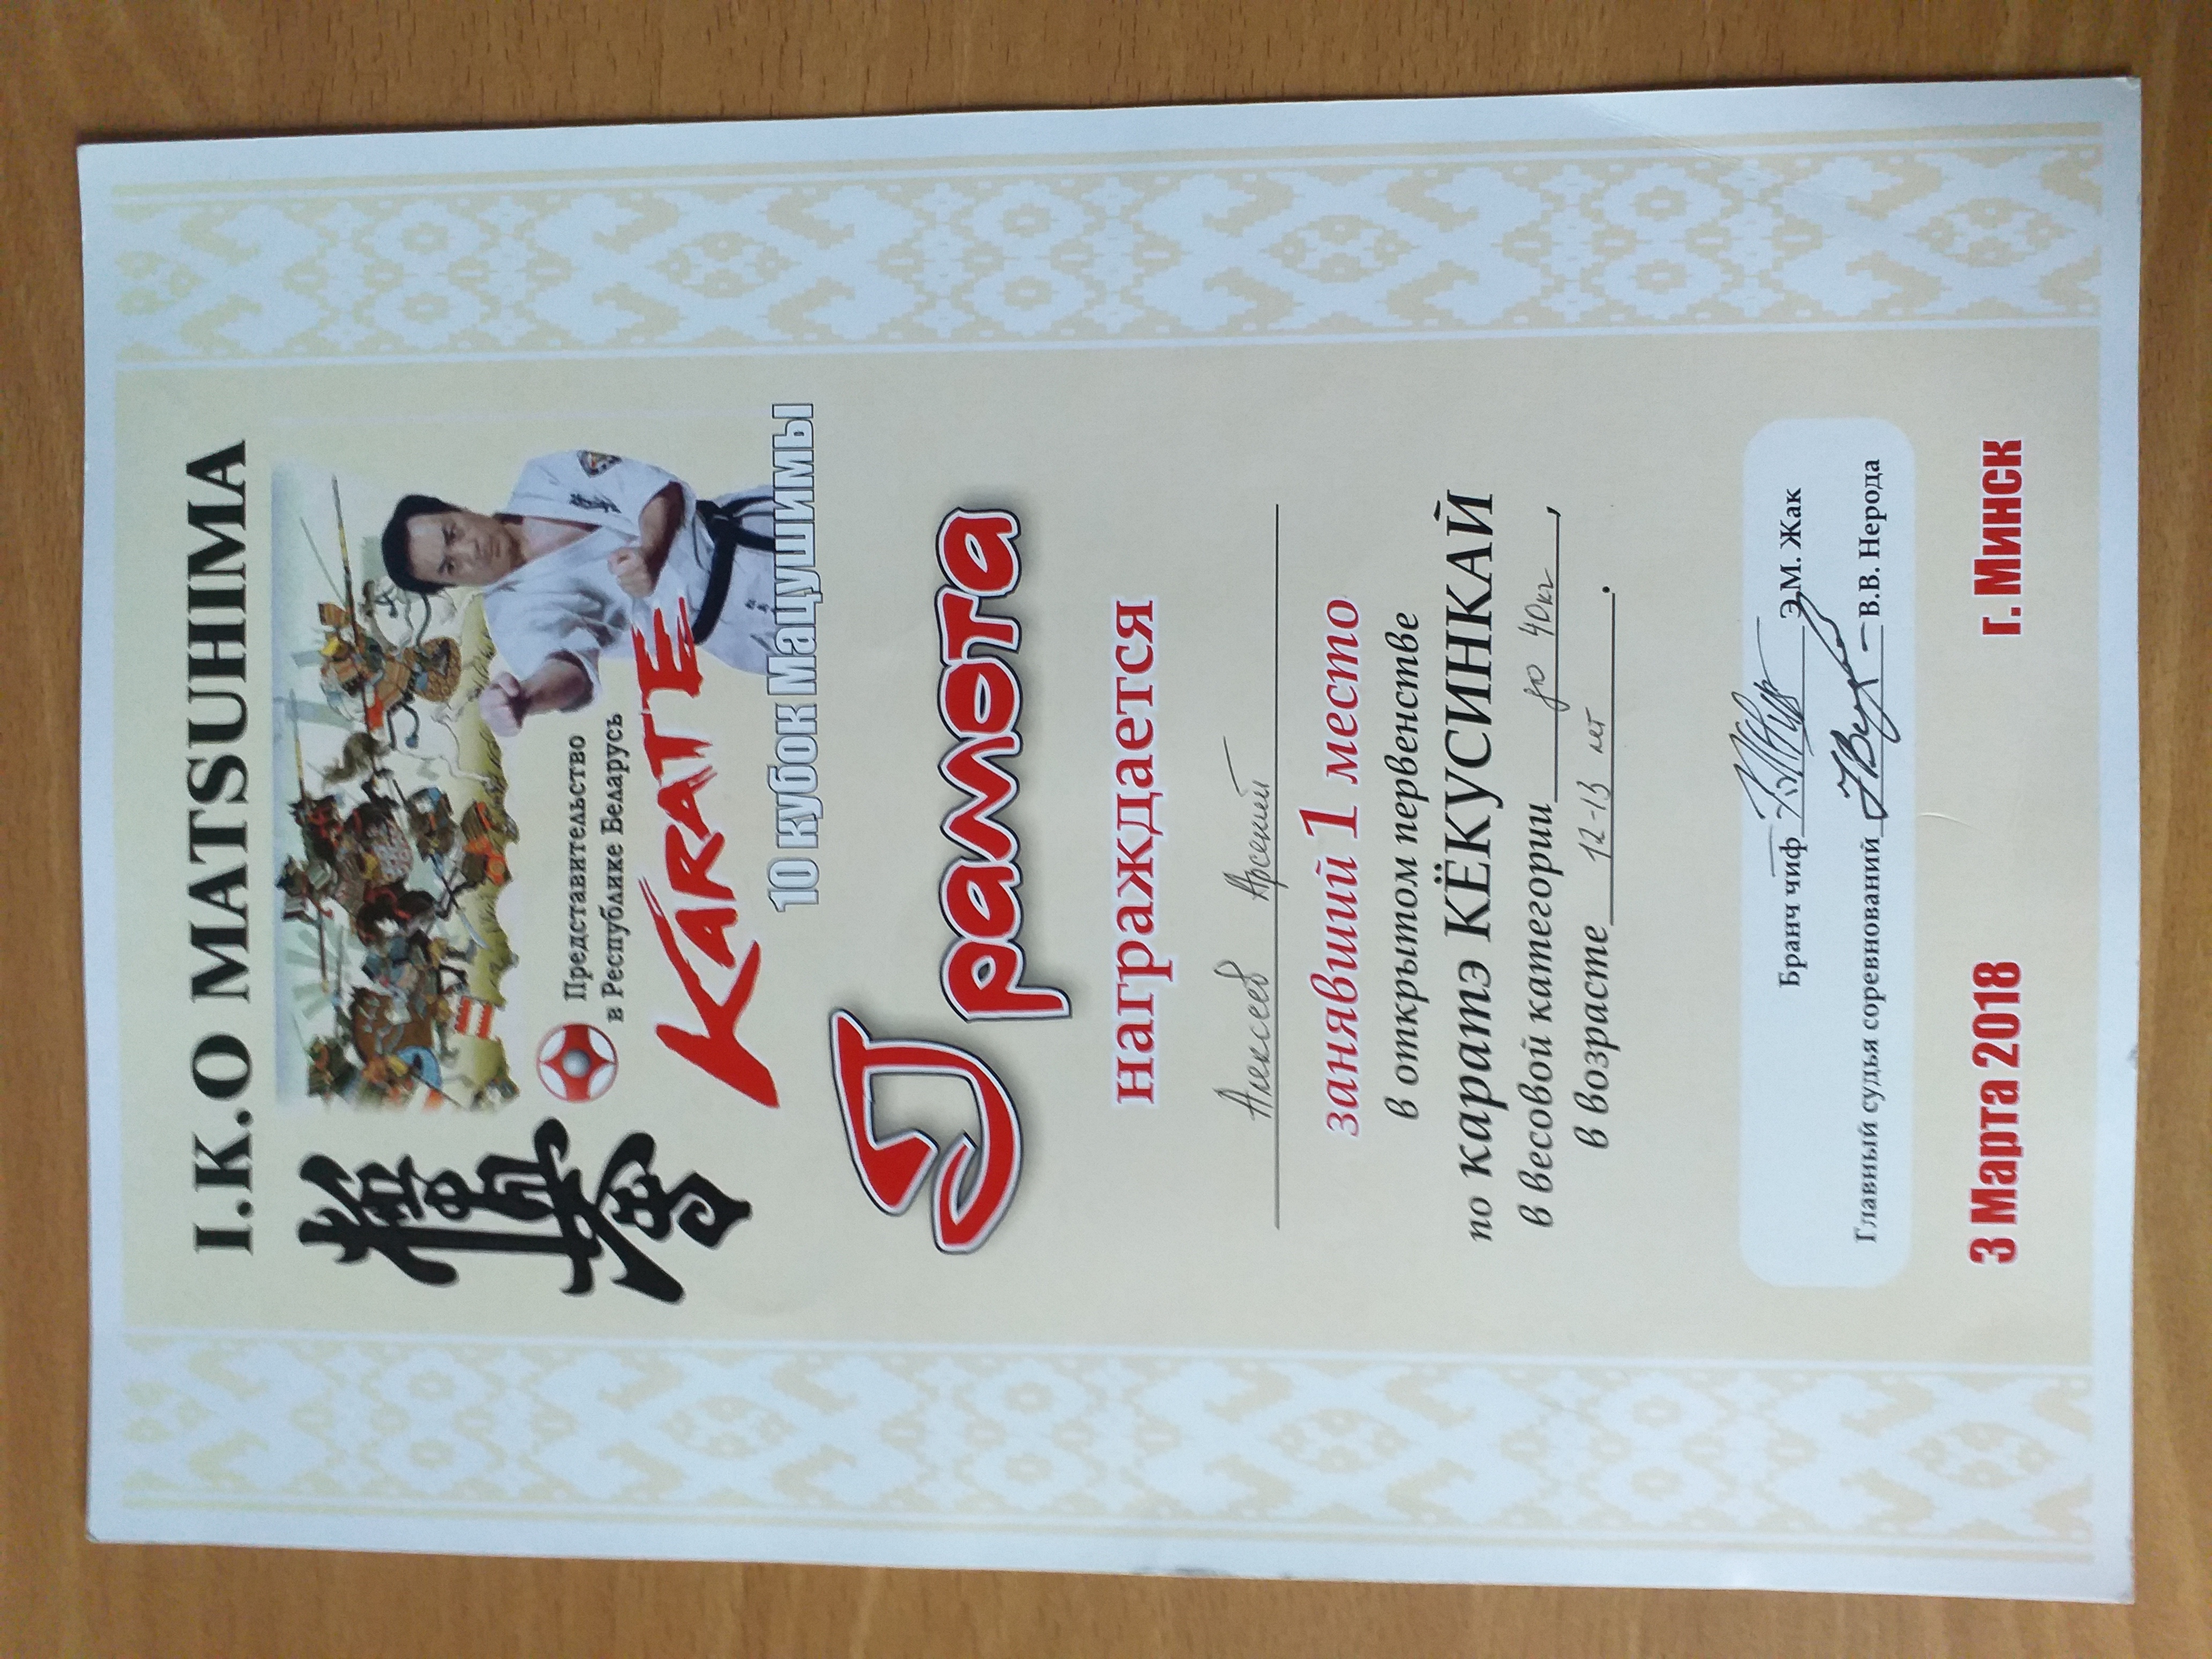 I.K.O MATSUHIMA
極真会
Представительство
в Республике Беларусь
KARATE
10 кубок Мацушимы
Грамота
награждается
Алексеев Арсений
занявший 1 место
в открытом первенстве
по каратэ КЁКУСИНКАЙ
в весовой категории до 40кг,
в возрасте 12-13 лет.
Бранч чиф Э.М. Жак
Главный судья соревнований В.В. Нерода
3 Марта 2018 г. Минск